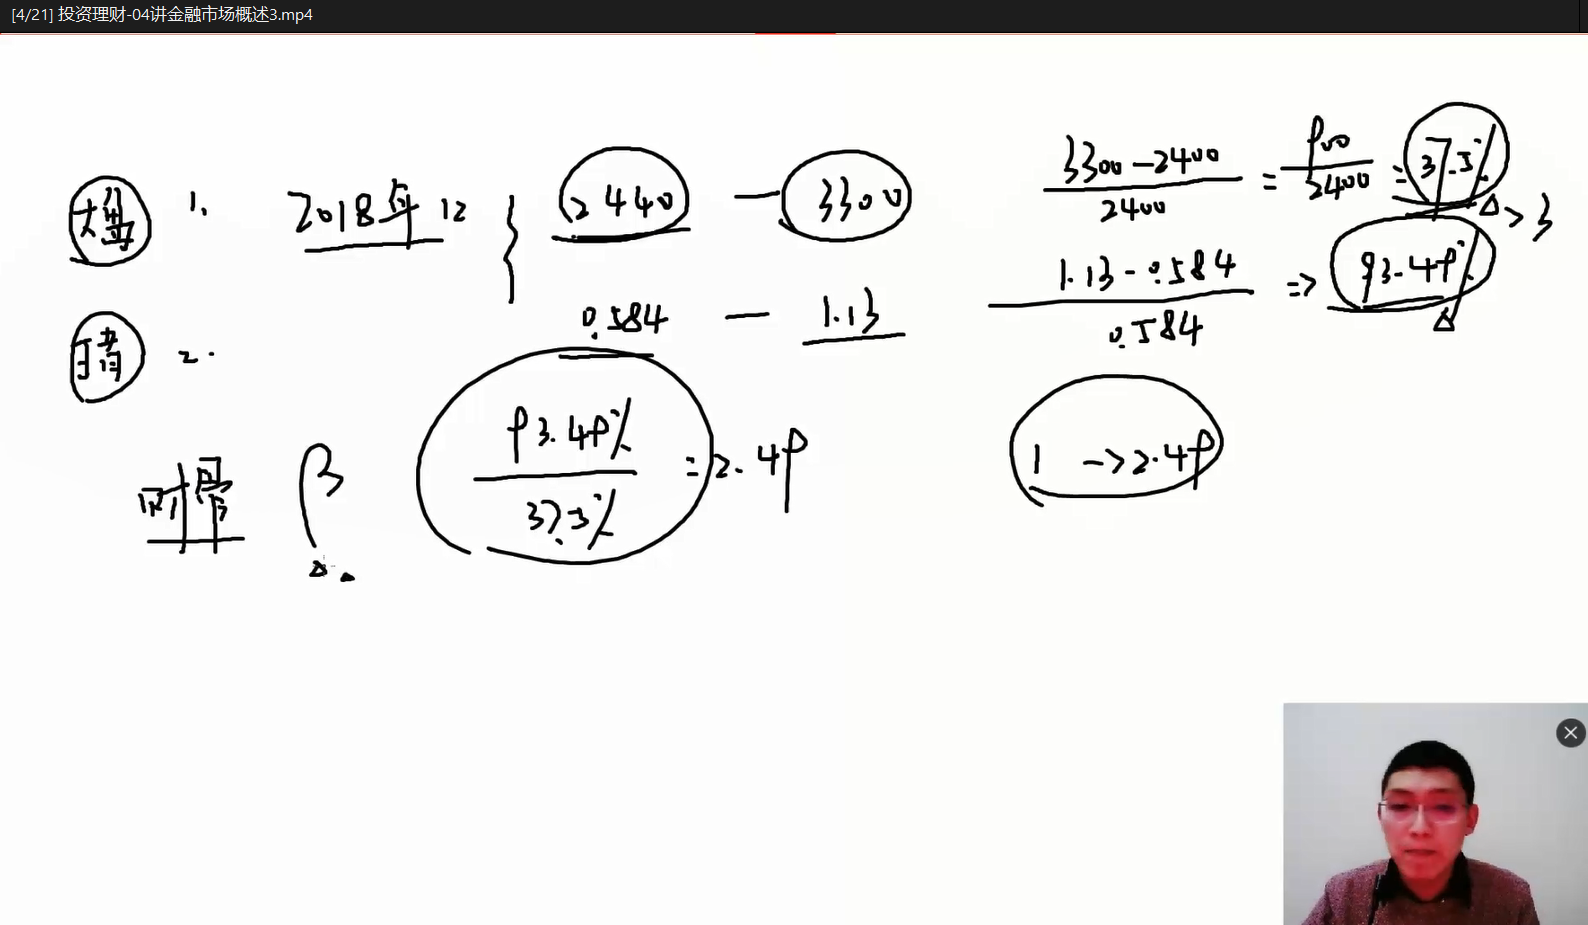 [4/21] 投资理财-04讲金融市场概述3.mp4
大盘 1. 2018年12 2440 — 3300
0.584 — 1.13
2.
3300-2400/2400 = 900/2400 = 37.5% > 3
1.13-0.584/0.584 => 93.49%
β 93.49%/37.5% = 2.49
1 -> 2.49